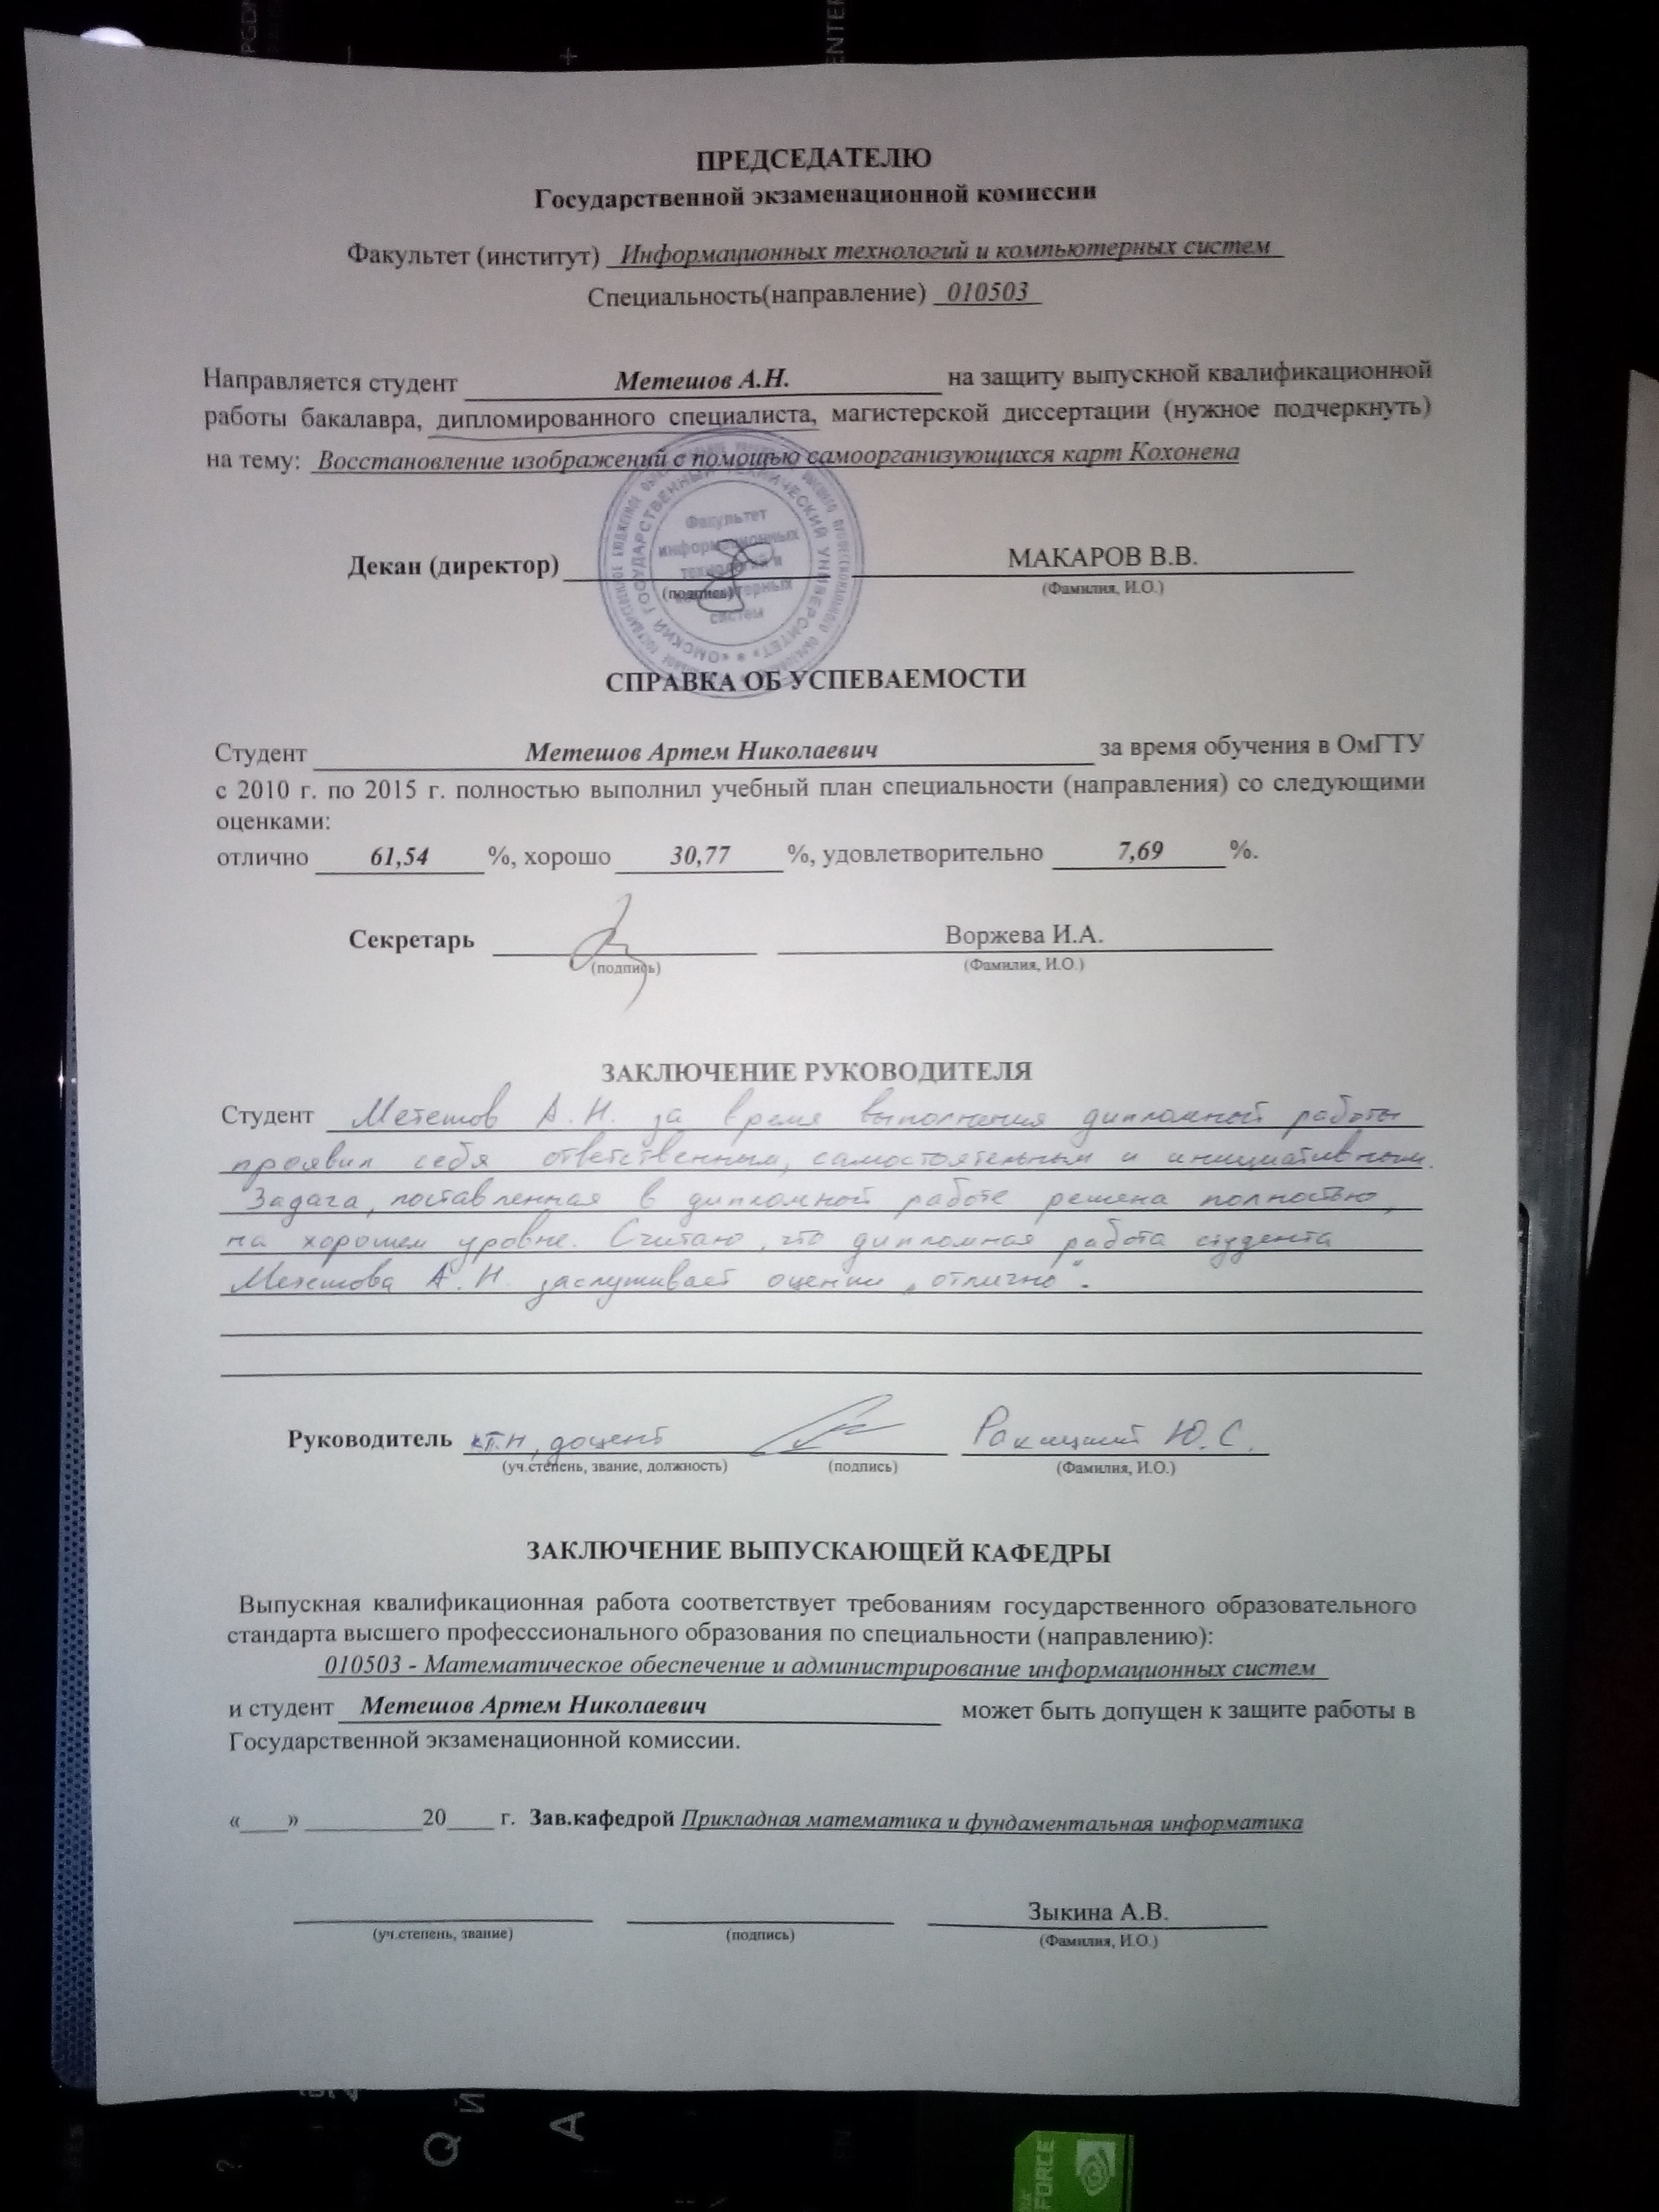 ПРЕДСЕДАТЕЛЮ
Государственной экзаменационной комиссии
Факультет (институт) Информационных технологий и компьютерных систем
Специальность(направление) 010503
Направляется студент Метешов А.Н. на защиту выпускной квалификационной
работы бакалавра, дипломированного специалиста, магистерской диссертации (нужное подчеркнуть)
на тему: Восстановление изображений с помощью самоорганизующихся карт Кохонена
ОМСКИЙ ГОСУДАРСТВЕННЫЙ ТЕХНИЧЕСКИЙ УНИВЕРСИТЕТ
Факультет
информационных
технологий и
компьютерных
систем
Декан (директор) МАКАРОВ В.В.
(подпись) (Фамилия, И.О.)
СПРАВКА ОБ УСПЕВАЕМОСТИ
Студент Метешов Артем Николаевич за время обучения в ОмГТУ
с 2010 г. по 2015 г. полностью выполнил учебный план специальности (направления) со следующими
оценками:
отлично 61,54 %, хорошо 30,77 %, удовлетворительно 7,69 %.
Секретарь Воржева И.А.
(подпись) (Фамилия, И.О.)
ЗАКЛЮЧЕНИЕ РУКОВОДИТЕЛЯ
Студент Метешов А.Н. за время выполнения дипломной работы
проявил себя ответственным, самостоятельным и инициативным.
Задача, поставленная в дипломной работе решена полностью,
на хорошем уровне. Считаю, что дипломная работа студента
Метешова А.Н. заслуживает оценки „отлично".
Руководитель к.т.н, доцент Ракицкий Ю.С.
(уч.степень, звание, должность) (подпись) (Фамилия, И.О.)
ЗАКЛЮЧЕНИЕ ВЫПУСКАЮЩЕЙ КАФЕДРЫ
Выпускная квалификационная работа соответствует требованиям государственного образовательного
стандарта высшего професссионального образования по специальности (направлению):
010503 - Математическое обеспечение и администрирование информационных систем
и студент Метешов Артем Николаевич может быть допущен к защите работы в
Государственной экзаменационной комиссии.
«____» __________20____ г. Зав.кафедрой Прикладная математика и фундаментальная информатика
Зыкина А.В.
(уч.степень, звание) (подпись) (Фамилия, И.О.)
Q Й
A
FORCE
ENTER